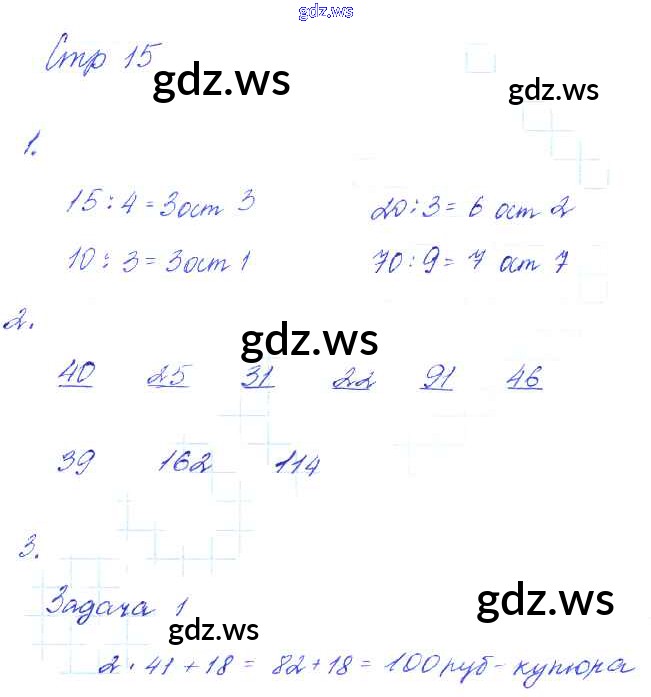 gdz.ws
Стр 15
gdz.ws
gdz.ws
1.
15 : 4 = 3 ост 3 20 : 3 = 6 ост 2
10 : 3 = 3 ост 1 70 : 9 = 7 ост 7
2.
gdz.ws
40 25 31 22 91 46
39 162 114
3.
Задача 1
gdz.ws
gdz.ws
2 · 41 + 18 = 82 + 18 = 100 руб - купюра